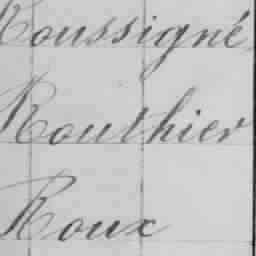 Roussigné
Routhier
Roux